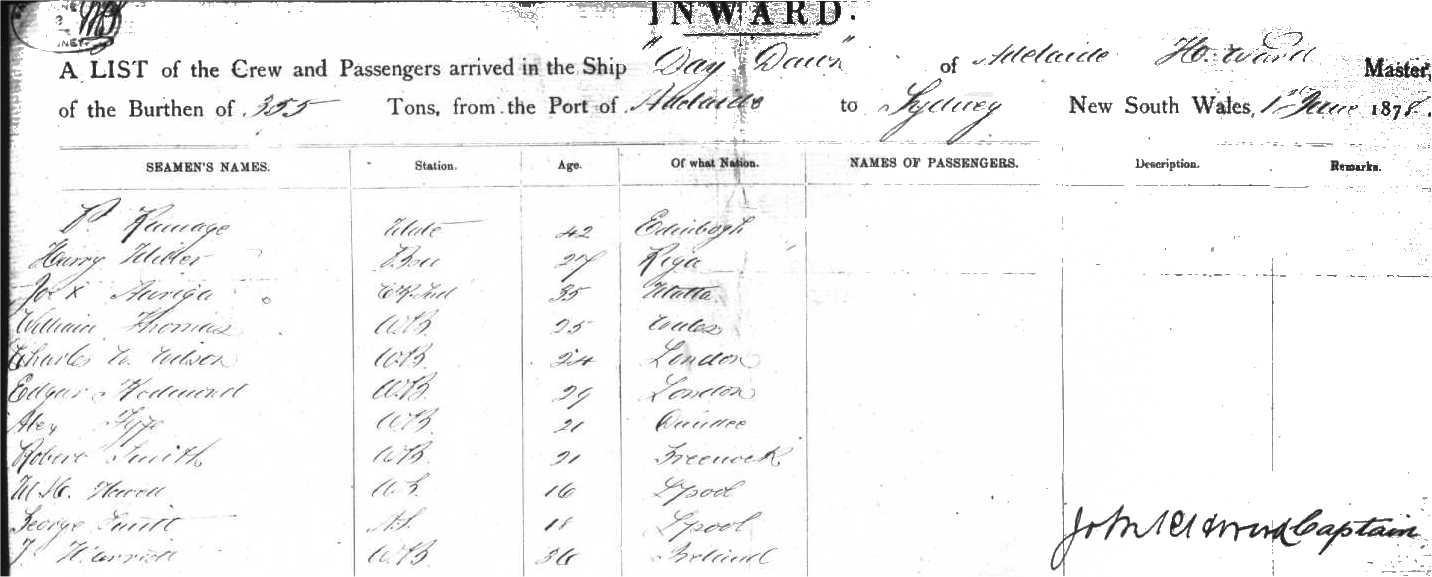 INWARD.
A LIST of the Crew and Passengers arrived in the Ship "Day Dawn" of Adelaide H. Ward Master,
of the Burthen of 355 Tons, from the Port of Adelaide to Sydney New South Wales, 1st June 1878.
SEAMEN'S NAMES. Station. Age. Of what Nation. NAMES OF PASSENGERS. Description. Remarks.
P. Ramage Mate 42 Edinbogh
Harry Miller 27 Riga
35 Malta
William Thomas A.B. 25 Wales
Charles W. Wilson A.B. 24 London
Edgar A.B. 29 London
Alex Fyfe A.B. 21 Dundee
Robert Smith A.B. 21 Greenock
16 Lpool
George 18 Lpool
J. A.B. 36 Ireland
John Captain